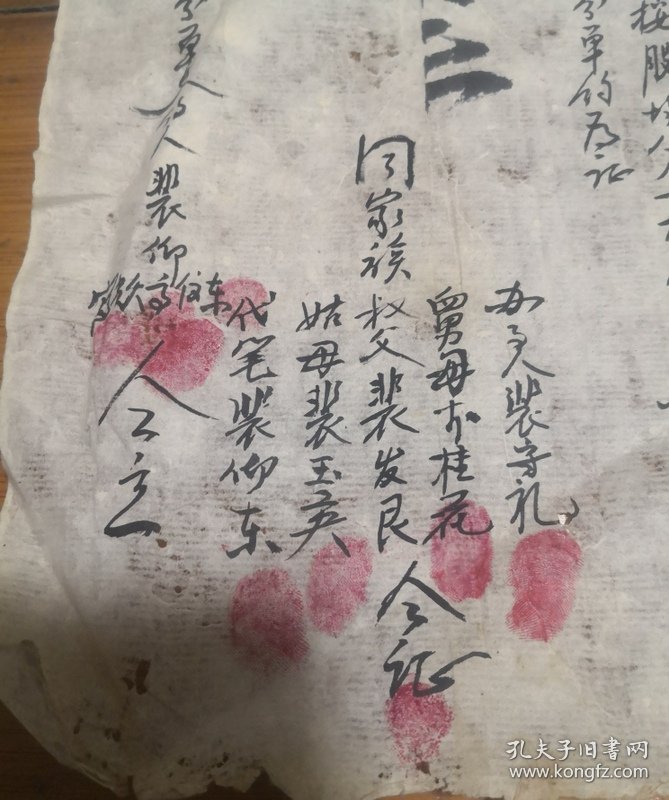 按股均分
分单约为证
办事人裴守礼
舅母 桂花
同家族叔父裴发良 仝证
姑母裴玉英
代笔裴仰东
分单人 裴仰 东 仝立
孔夫子旧书网
www.kongfz.com